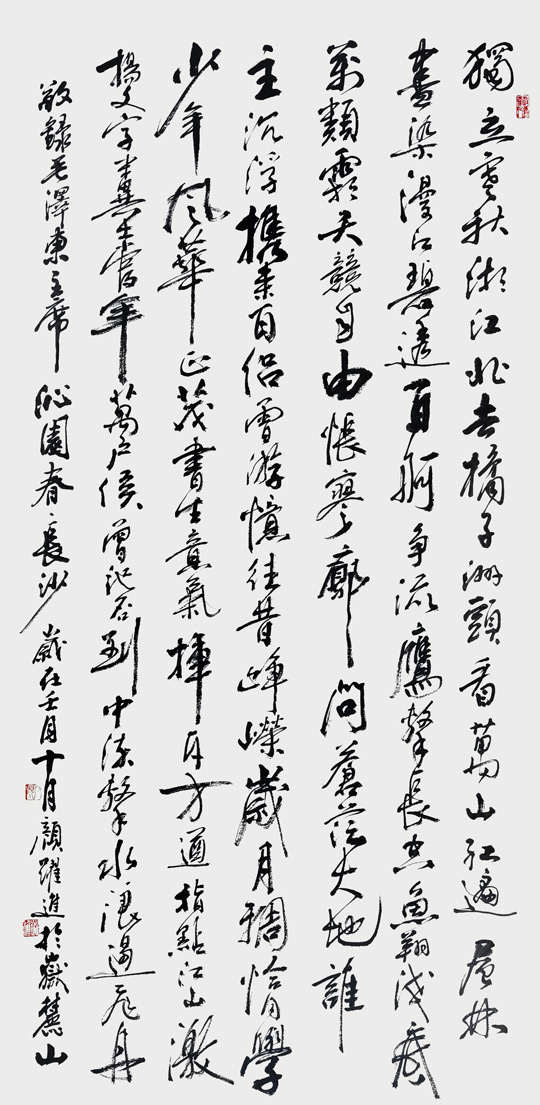 獨立寒秋湘江北去橘子洲頭看萬山紅遍層林
盡染漫江碧透百舸争流鷹擊長空魚翔淺底
萬類霜天競自由悵寥廓問蒼茫大地誰
主沉浮攜來百侣曾游憶往昔崢嶸歲月稠恰同學
少年風華正茂書生意氣揮斥方遒指點江山激
揚文字糞土當年萬户侯曾記否到中流擊水浪遏飛舟
敬録毛澤東主席沁園春長沙歲在壬十月顏躍進於嶽麓山